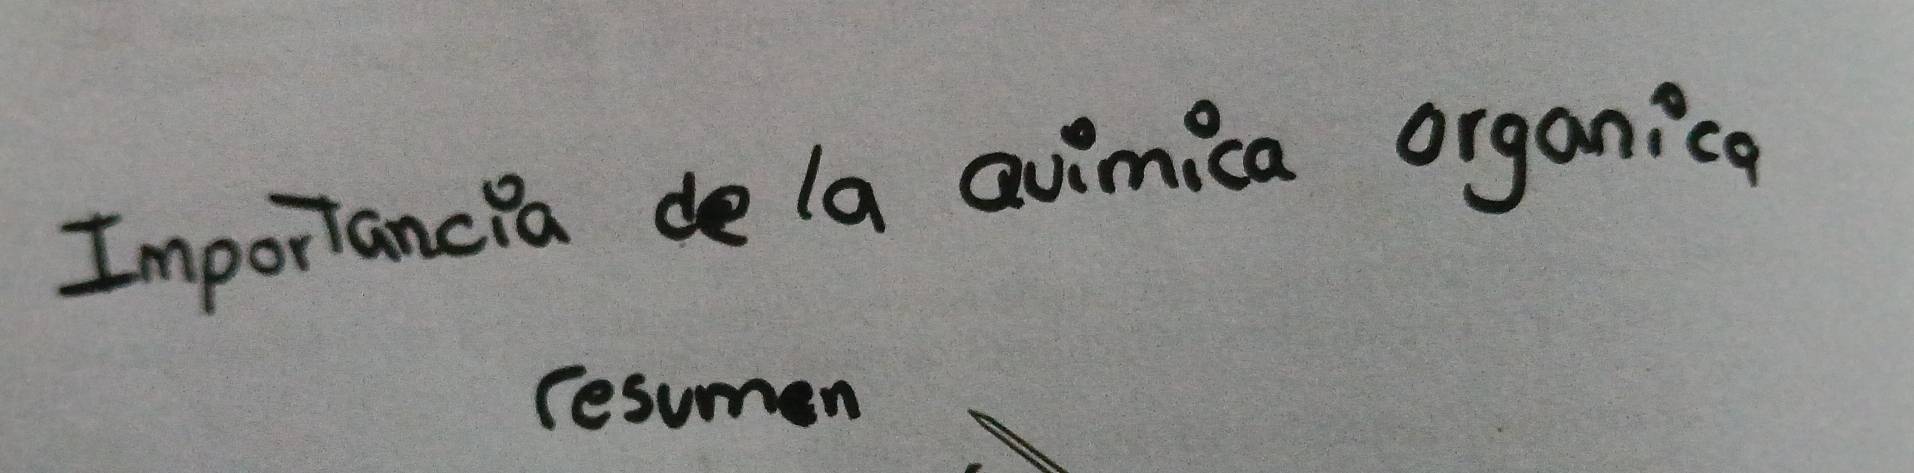 Importancia de la Quimica organica
resumen